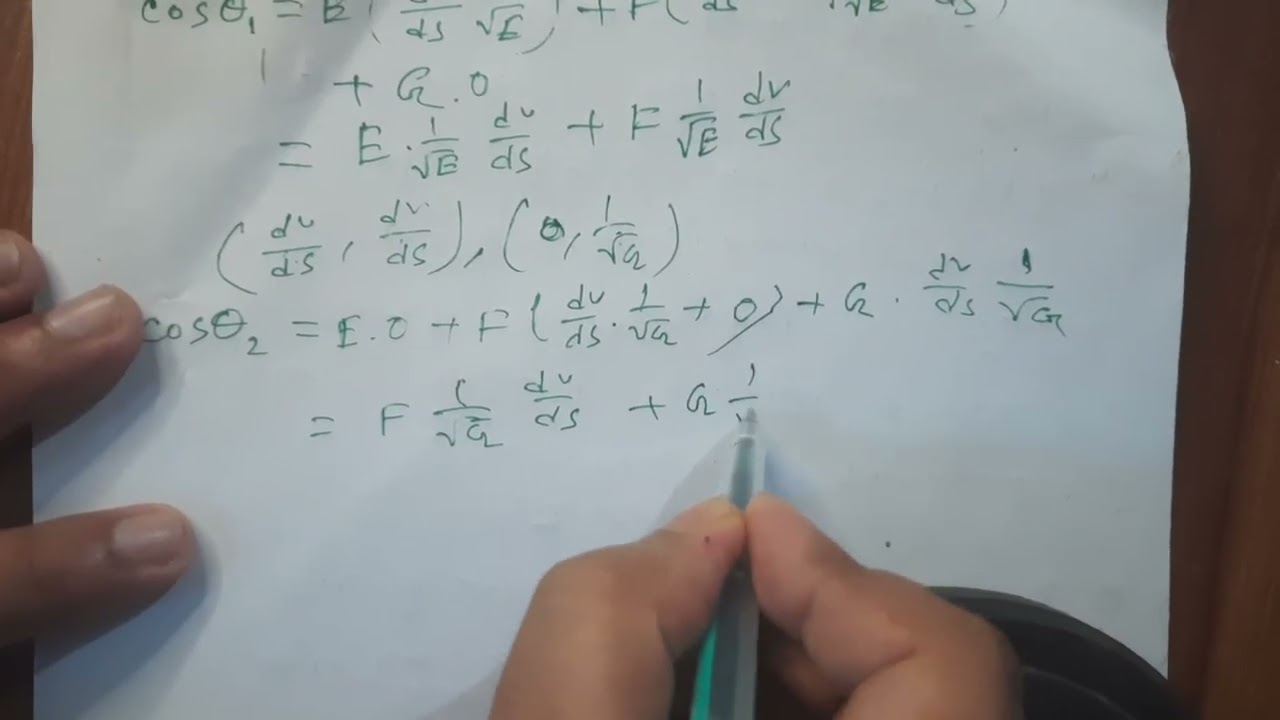 cosθ₁ = E( /ds 1/√E ) + F( /ds 1/√E /ds )
+ G . 0
= E . 1/√E du/ds + F 1/√E dv/ds
( du/ds , dv/ds ), ( 0, 1/√G )
cosθ₂ = E.0 + F( du/ds . 1/√G + 0 ) + G . dv/ds 1/√G
= F 1/√G du/ds + G 1/√